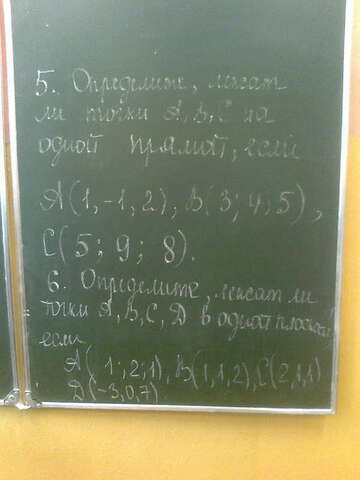 5. Определите, лежат
ли точки A, B, C на
одной прямой, если
A(1,-1,2), B(3; 4; 5),
C(5; 9; 8).
6. Определите, лежат ли
точки A, B, C, D в одной плоской
если
A( 1; 2; 1), B(1, 1, 2), C(2,1,1)
D(-3,0,7)